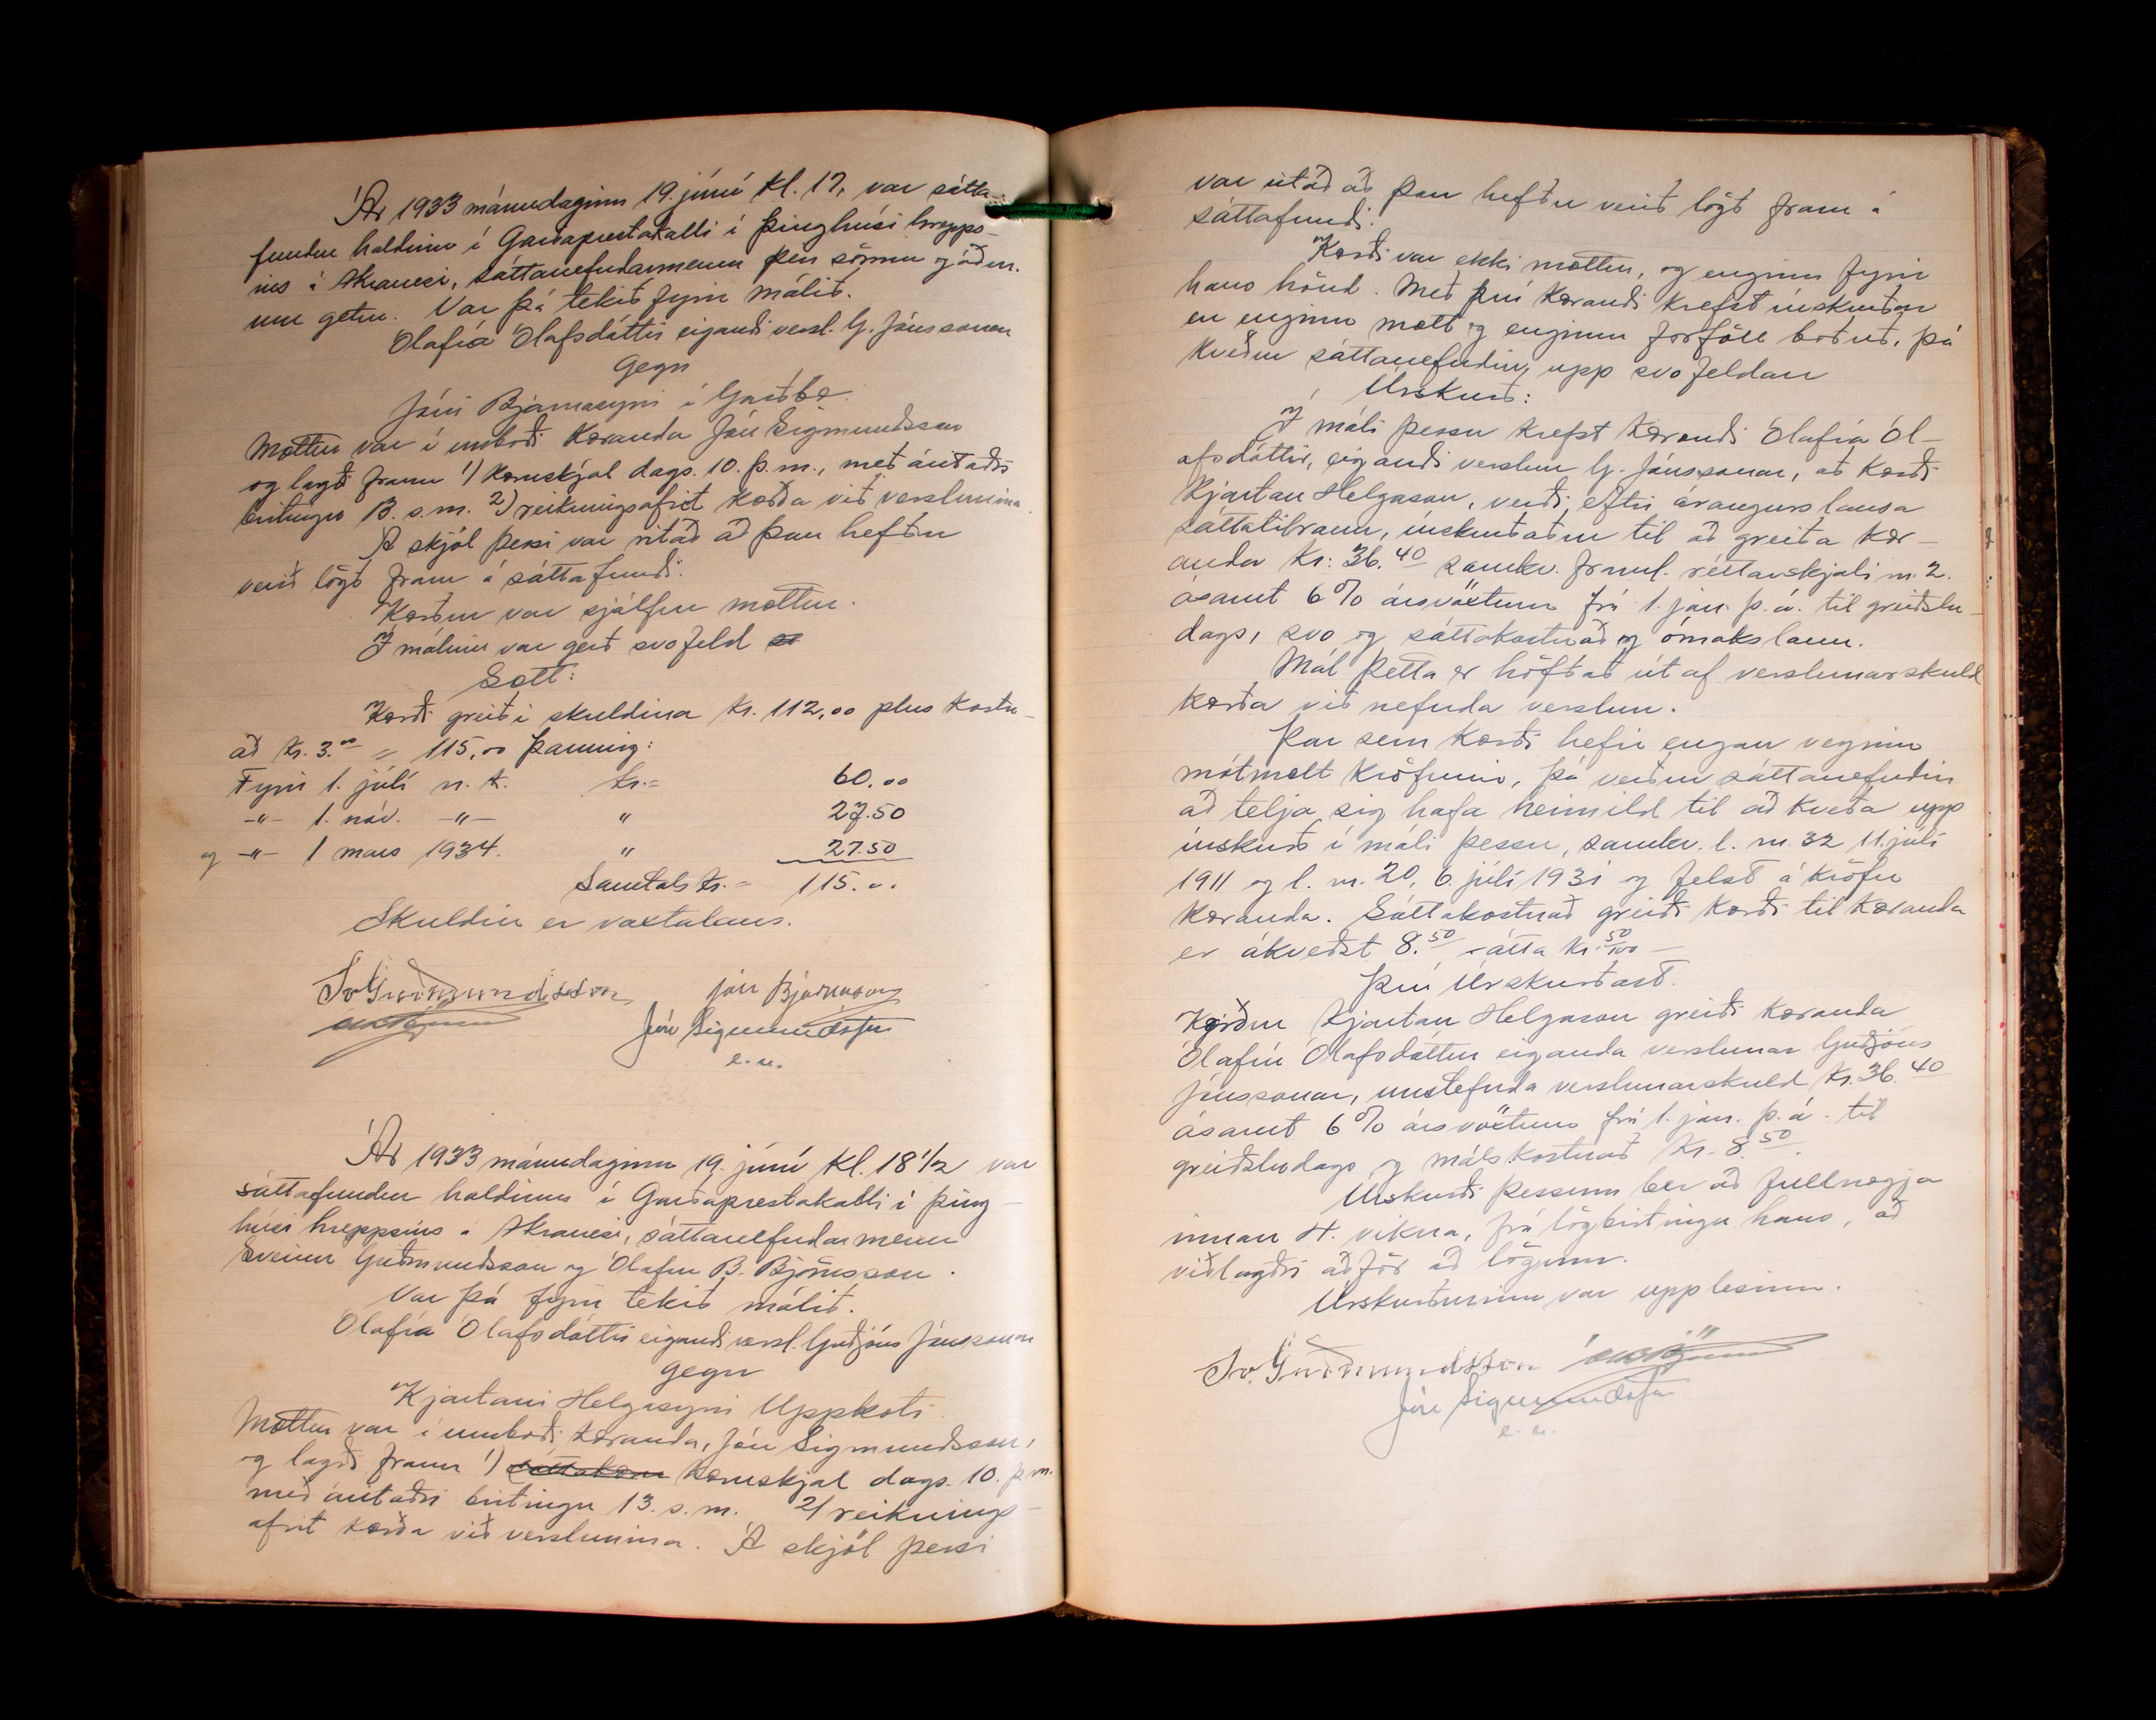 Ár 1933 mánudaginn 19. júní kl. 17, var sátta-
fundur haldinn í Garðaprestakalli í þinghúsi hrepps-
ins á Akranesi, sáttanefndarmenn þeir sömu og áður
um getur. Var þá tekið fyrir málið.
Ólafía Ólafsdóttir eigandi versl. G. Jónssonar
Gegn
Jóni Bjarnasyni í Garðbæ.
Mættur var í umboði kæranda Jón Sigmundsson
og lagði fram 1) kæruskjal dags. 10. þ.m., með árituðri
birtingu 13. s.m. 2) reikningsafrit kærða við verslunina.
Á skjöl þessi var ritað að þau hefðu
verið lögð fram á sáttafundi.
Kærður var sjálfur mættur.
Í málinu var gerð svofeld
Sætt:
Kærði greiði skuldina kr. 112,00 plus kostn-
að kr. 3.00 = 115,00 þannig:
Fyrir 1. júlí n.k. kr.= 60.00
-"- 1. nóv. -"- " 27.50
og -"- 1 mars 1934. " 27.50
Samtals kr. = 115.00
Skuldin er vaxtalaus.
Sv Guðmundsson Jón Bjarnason
Jón Sigmundsson
e.u.
Ár 1933 mánudaginn 19. júní kl. 18 1/2 var
sáttafundur haldinn í Garðaprestakalli í þing-
húsi hreppsins á Akranesi, sáttanefndarmenn
Sveinn Guðmundsson og Ólafur B. Björnsson.
Var þá fyrir tekið málið.
Ólafía Ólafsdóttir eigandi versl. Guðjóns Jónssonar
gegn
Kjartani Helgasyni Uppkoti.
Mættur var í umboði kæranda, Jón Sigmundsson,
og lagði fram 1) kæruskjal dags. 10. þ.m.
með áritaðri birtingu 13. s.m. 2/ reiknings-
afrit kærða við verslunina. Á skjöl þessi
var ritað að þau hefðu verið lögð fram á
sáttafundi.
Kærði var ekki mættur, og enginn fyrir
hans hönd. Með því kærandi krefst úrskurðar
en enginn mætt og enginn forföll boðað, þá
kveður sáttanefndin upp svofeldan
Úrskurð:
Í máli þessu krefst kærandi Ólafía Ól-
afsdóttir, eigandi verslun G. Jónssonar, að kærði
Kjartan Helgason, verði, eftir árangurslausa
sáttatilraun, úrskurðaður til að greiða kær-
anda kr: 36.40 samkv. framl. réttarskjali nr. 2.
ásamt 6% ársvöxtum frá 1. jan. þ.á. til greiðslu-
dags, svo og sáttakostnað og ómakslaun.
Mál þetta er höfðað út af verslunarskuld
kærða við nefnda verslun.
Þar sem kærði hefir engan veginn
mótmælt kröfunni, þá verður sáttanefndin
að telja sig hafa heimild til að kveða upp
úrskurð í máli þessu, samkv. l. nr. 32 11. júlí
1911 og l. nr. 20, 6. júlí 1931 og felst á kröfu
kæranda. Sáttakostnað greiði kærði til kæranda
er ákveðst 8.50 - átta kr. 50/100 -
Því Úrskurðast.
Kærður Kjartan Helgason greiði kæranda
Ólafíu Ólafsdóttur eiganda verslunar Guðjóns
Jónssonar, umstefnda verslunarskuld kr. 36.40
ásamt 6% ársvöxtum frá 1. jan. þ.á. til
greiðsludags og málskostnað kr. 8.50.
Úrskurði þessum ber að fullnægja
innan 4. vikna, frá lögbirtingu hans, að
viðlagðri aðför að lögum.
Úrskurðurinn var upplesinn.
Sv. Guðmundsson
Jón Sigmundsson
e.u.